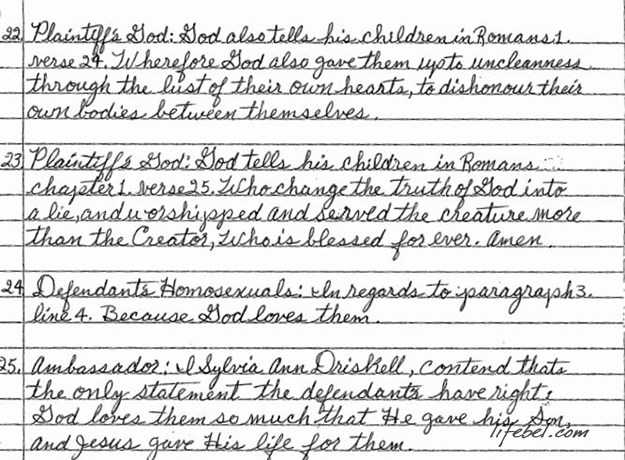 22. Plaintiff's God: God also tells his children in Romans 1.
verse 24. Wherefore God also gave them up to uncleanness
through the lust of their own hearts, to dishonour their
own bodies between themselves.
23. Plaintiff's God: God tells his children in Romans
chapter 1. verse 25. Who change the truth of God into
a lie, and worshipped and served the creature more
than the Creator, Who is blessed for ever. Amen
24. Defendants Homosexuals: In regards to paragraph 3.
line 4. Because God loves them.
25. Ambassador: I Sylvia Ann Driskell, contend thats
the only statement the defendants have right;
God loves them so much that He gave his Son,
and Jesus gave His life for them.
lifebel.com